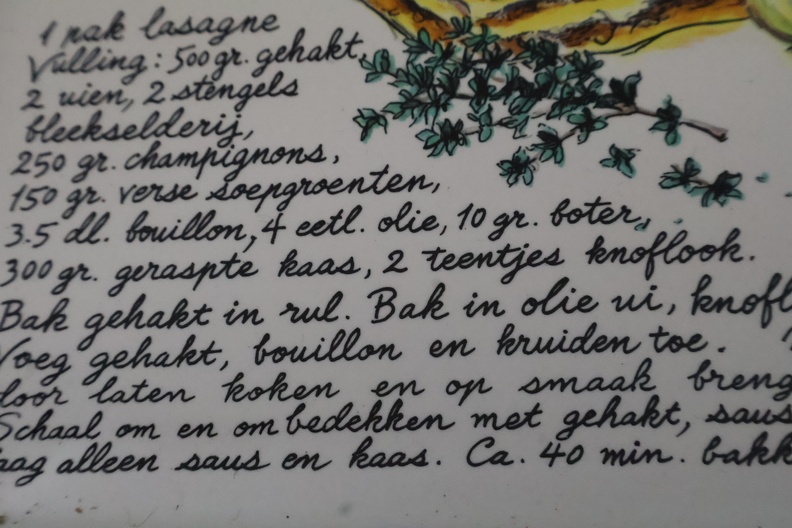 1 pak lasagne
Vulling: 500 gr. gehakt,
2 uien, 2 stengels
bleekselderij,
250 gr. champignons,
150 gr. verse soepgroenten,
3.5 dl. bouillon, 4 eetl. olie, 10 gr. boter,
300 gr. geraspte kaas, 2 teentjes knoflook.
Bak gehakt in rul. Bak in olie ui, knofl
Voeg gehakt, bouillon en kruiden toe.
door laten koken en op smaak breng
Schaal om en om bedekken met gehakt, saus
aag alleen saus en kaas. Ca. 40 min. bakk